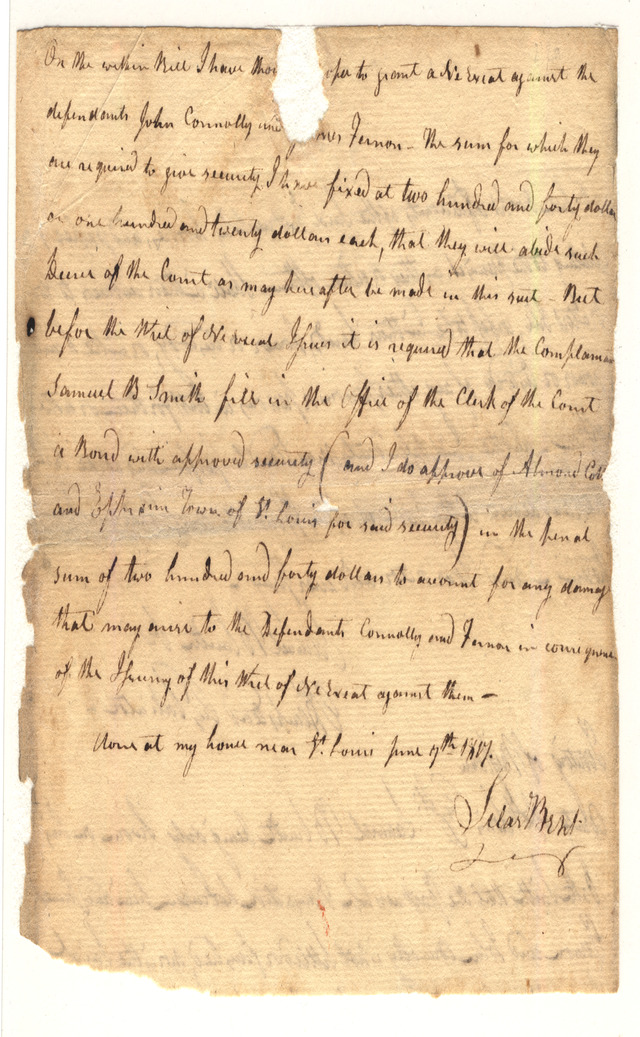 On the within Bill I have thou oper to grant a Ne Exeat against the
defendants John Connolly and mes Fernon - The sum for which they
are required to give security I have fixed at two hundred and forty dollars
or one hundred and twenty dollars each, that they will abide such
Decree of the Court as may hereafter be made in this suit - But
befor the Writ of Ne exeat Issues it is required that the Complainan
Samuel B Smith file in the Office of the Clerk of the Court
a Bond with approved security (and I do approve of Almond Cob
and Ephraim Town of St. Louis for said security) in the penal
sum of two hundred and forty dollars to account for any damage
that may arise to the Defendants Connolly and Fernon in consequence
of the Issuing of this Writ of Ne Exeat against them -
Done at my house near St. Louis June 9th 1817.
Silas Bent